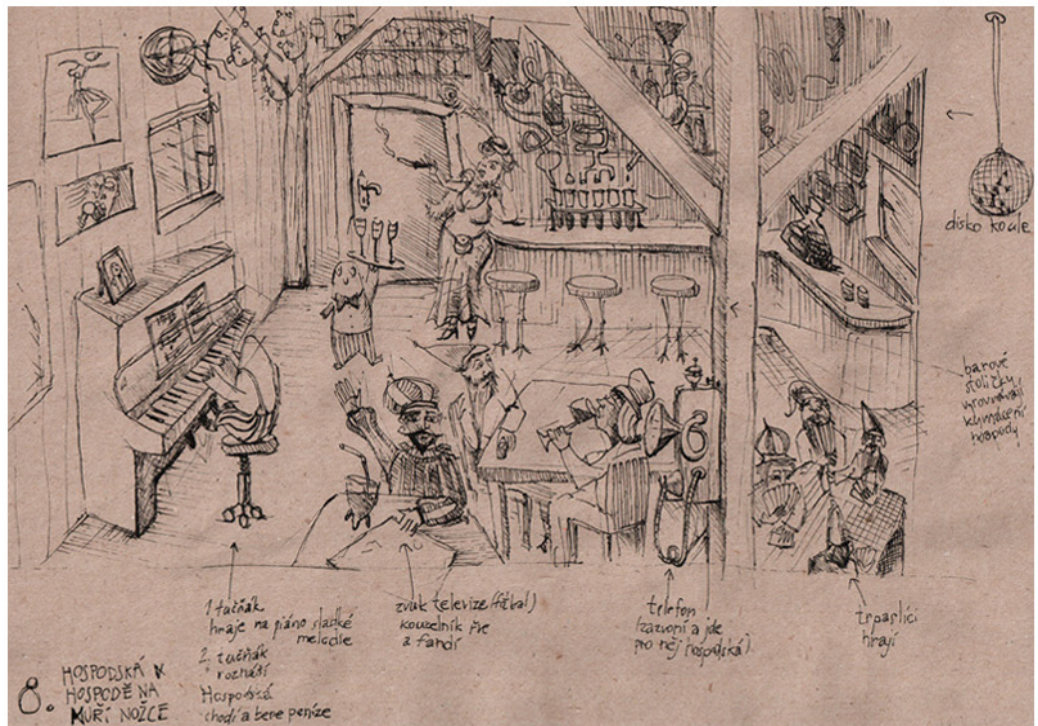 disko koule
barové
stoličky
vyrovnávají
kymácení
hospody
1 tučňák
hraje na piáno sladké
melodie
2. tučňák
roznáší
Hospodská
chodí a bere peníze
zvuk televize (fotbal)
kouzelník řve
a fandí
telefon
(zazvoní a jde
pro něj hospodská)
trpaslíci
hrají
8. HOSPODSKÁ V
HOSPODĚ NA
KUŘÍ NOŽCE
6